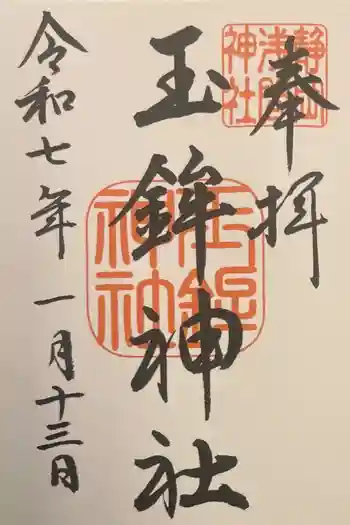 奉拝
静岡
浅間
神社
玉鉾神社
玉鉾
神社
令和七年一月十三日